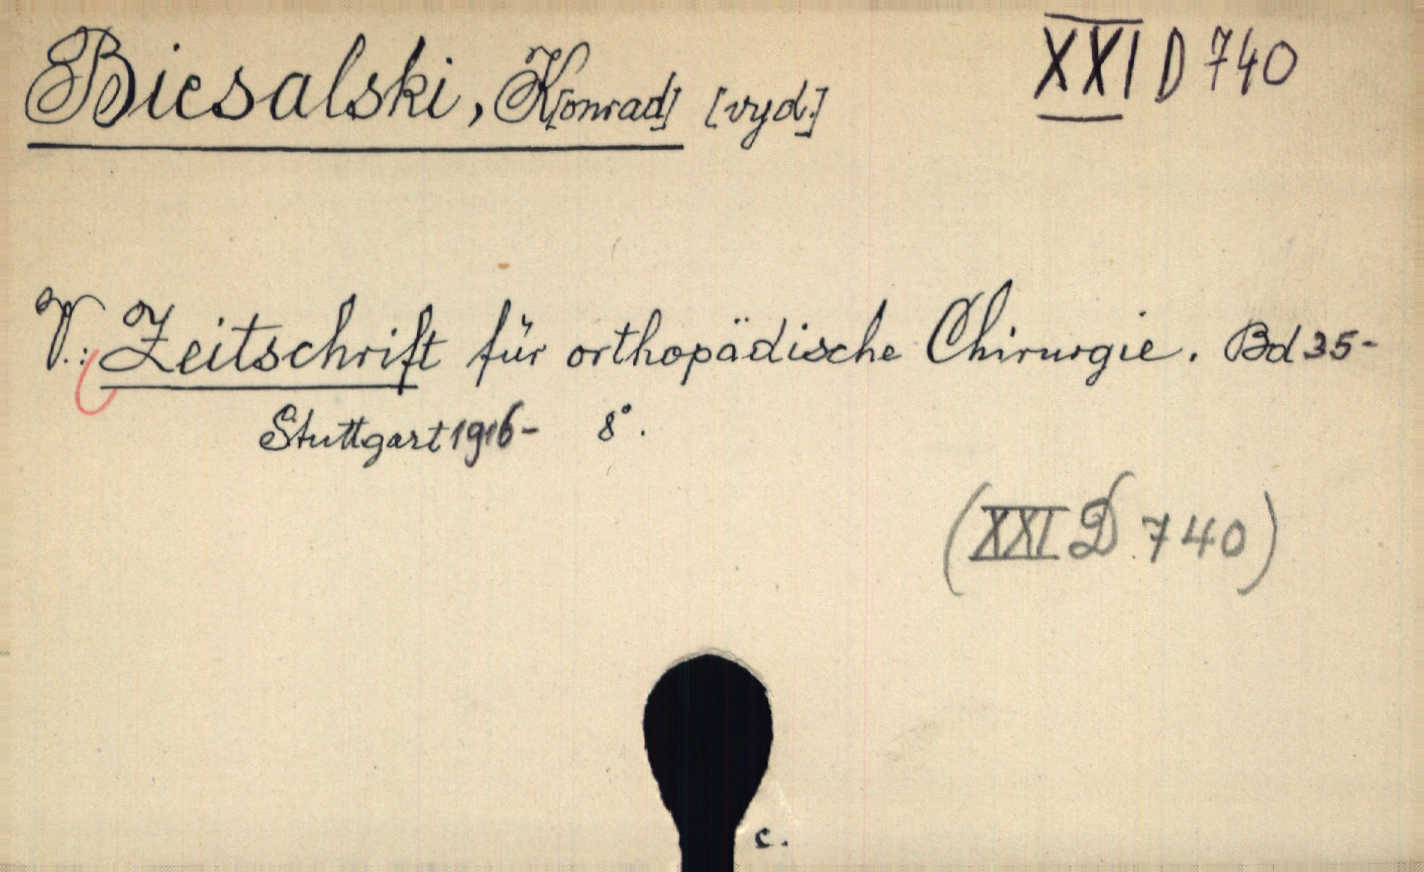 Biesalski, K[onrad] [vyd.]
XXI D 740
V.: Zeitschrift für orthopädische Chirurgie. Bd 35-
Stuttgart 1916- 8°.
(XXI D 740)
c.